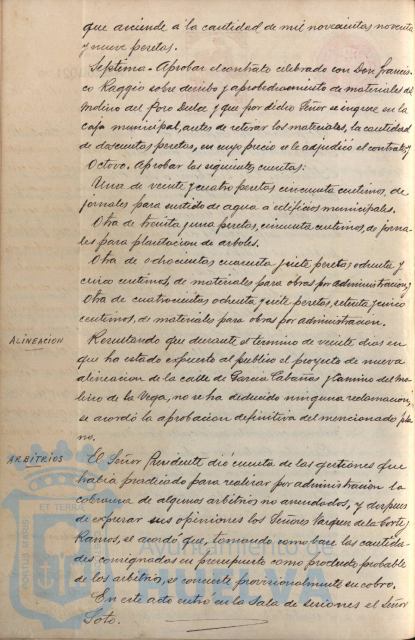 que asciende á la cantidad de mil novecientas noventa
y nueve pesetas.
Septimo.- Aprobar el contrato celebrado con Don Francis-
co Raggio sobre derribo y aprobechamiento de materiales del
Molino del Pozo Dulce y que por dicho Señor se ingrese en la
caja municipal, antes de retirar los materiales, la cantidad
de doscientas pesetas, en cuyo precio se le adjudicó el contrato y
Octavo. Aprobar las siguientes cuentas:
Una de veinte y cuatro pesetas cincuenta centimos, de
jornales para surtido de agua a edificios municipales.
Otra de treinta y una pesetas, cincuenta centimos, de jorna-
les para plantacion de arboles.
Otra de ochocientas cuarenta y siete pesetas ochenta y
cinco centimos, de materiales para obras por administracion, y
Otra de cuatrocientas ochenta y siete pesetas, setenta y cinco
centimos, de materiales para obras por administracion.
ALINEACION
Resultando que durante el termino de veinte dias en
que ha estado expuesto al publico el proyecto de nueva
alineacion de la calle de Garcia Cabañas y Camino del Mo-
lino de la Vega, no se ha deducido ninguna reclamacion,
se acordó la aprobacion definitiva del mencionado pla-
no.
ARBITRIOS
El Señor Presidente dió cuenta de las gestiones que
habia practicado para realizar por administracion la
cobranza de algunos arbitrios no arrendados, y despues
de expresar sus opiniones los Señores Vazquez de la Corte y
Ramos, se acordó que, tomando como base las cantida-
des consignadas en presupuesto como producto probable
de los arbitrios, se concierte provisionalmente su cobro.
En este acto entró en la Sala de sesiones el Señor
Soto.
ET TERRÆ
PORTUS MARIS
CUSTODIA
Ayuntamiento de
HUELVA